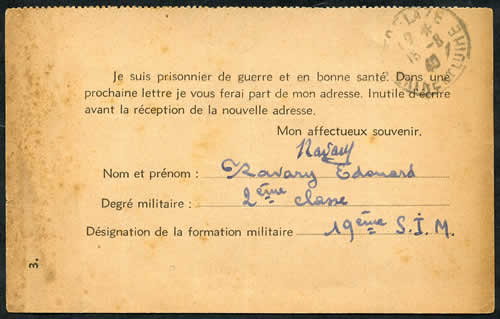 Je suis prisonnier de guerre et en bonne santé. Dans une
prochaine lettre je vous ferai part de mon adresse. Inutile d'écrire
avant la réception de la nouvelle adresse.
Mon affectueux souvenir.
Ravary
Nom et prénom : Ravary Edouard
Degré militaire : 2ème classe
Désignation de la formation militaire 19ème S.I.M.
3.